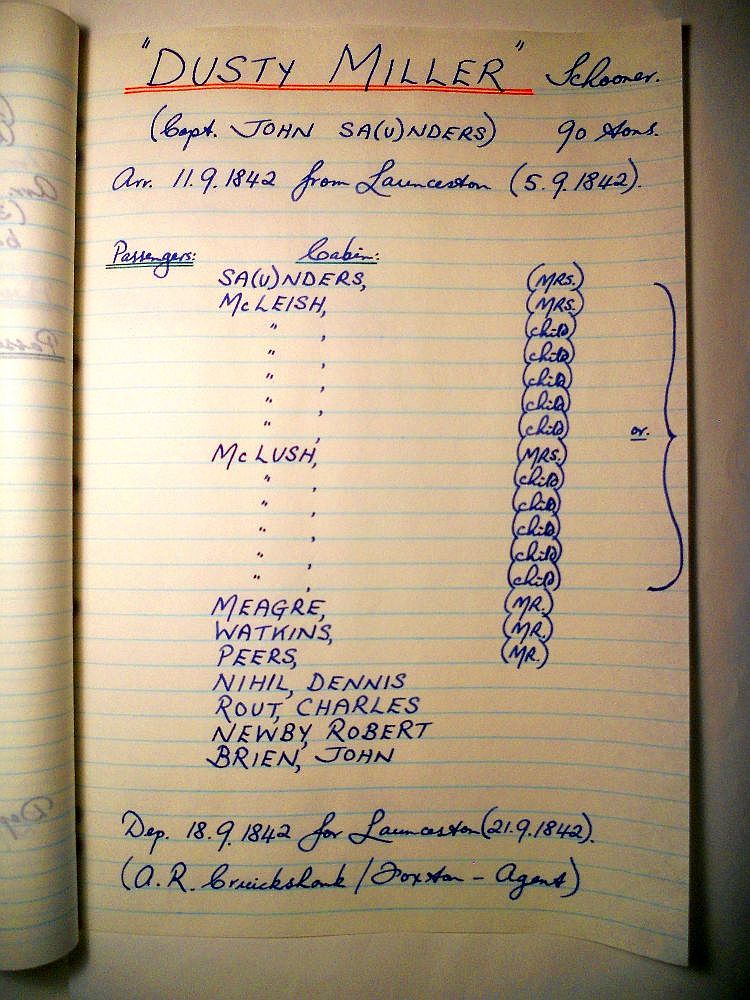 "DUSTY MILLER" Schooner.
(Capt. JOHN SA(U)NDERS) 90 tons.
Arr. 11.9.1842 from Launceston (5.9.1842).
Passengers: Cabin:
SA(U)NDERS, (MRS.)
McLEISH, (MRS.)
" , (child)
" , (child)
" , (child)
" , (child)
" , (child)
or.
McLUSH, (MRS.)
" , (child)
" , (child)
" , (child)
" , (child)
" , (child)
MEAGRE, (MR.)
WATKINS, (MR.)
PEERS, (MR.)
NIHIL, DENNIS
ROUT, CHARLES
NEWBY, ROBERT
BRIEN, JOHN
Dep. 18.9.1842 for Launceston (21.9.1842).
(A.R. Cruickshank / Foxton - Agent)